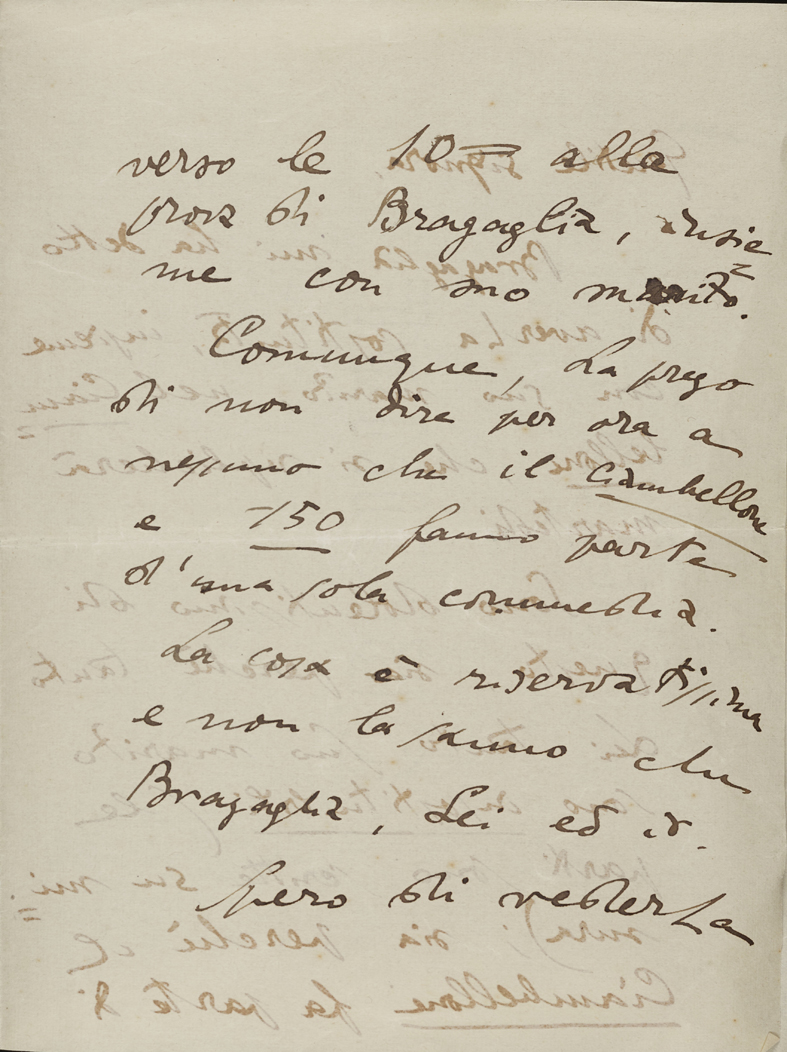 verso le 10 — alla
prova di Bragaglia, insie=
me con suo marito.
Comunque, La prego
di non dire per ora a
nessuno che il Ciambellone
e -150 fanno parte
d'una sola commedia.
La cosa è riservatissima
e non la sanno che
Bragaglia, Lei ed io.
Spero di vederLa